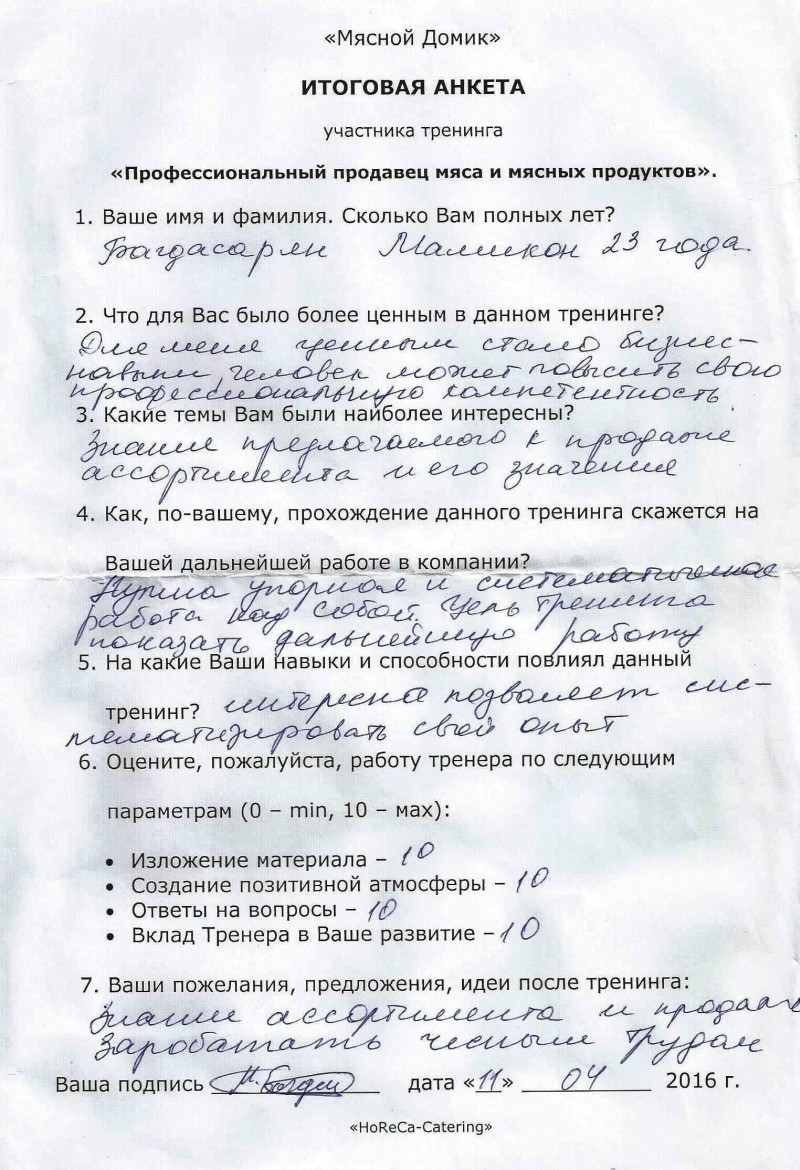 «Мясной Домик»
ИТОГОВАЯ АНКЕТА
участника тренинга
«Профессиональный продавец мяса и мясных продуктов».
1. Ваше имя и фамилия. Сколько Вам полных лет?
Багдасарян Мамикон 23 года.
2. Что для Вас было более ценным в данном тренинге?
Для меня ценным стало бизнес-
навыки, человек может повысить свою
профессиональную компетентность
3. Какие темы Вам были наиболее интересны?
Знание предлагаемого к продаже
ассортимента и его значения
4. Как, по-вашему, прохождение данного тренинга скажется на
Вашей дальнейшей работе в компании?
Нужна упорная и систематическая
работа над собой. Цель тренинга
показать дальнейшую работу
5. На какие Ваши навыки и способности повлиял данный
тренинг? интересна позваляет сис-
тематизировать свой опыт
6. Оцените, пожалуйста, работу тренера по следующим
параметрам (0 – min, 10 – мах):
• Изложение материала – 10
• Создание позитивной атмосферы – 10
• Ответы на вопросы – 10
• Вклад Тренера в Ваше развитие – 10
7. Ваши пожелания, предложения, идеи после тренинга:
Знание ассортимента и
Заробатать чесным трудом
Ваша подпись дата «11» 04 2016 г.
«HoReCa-Catering»